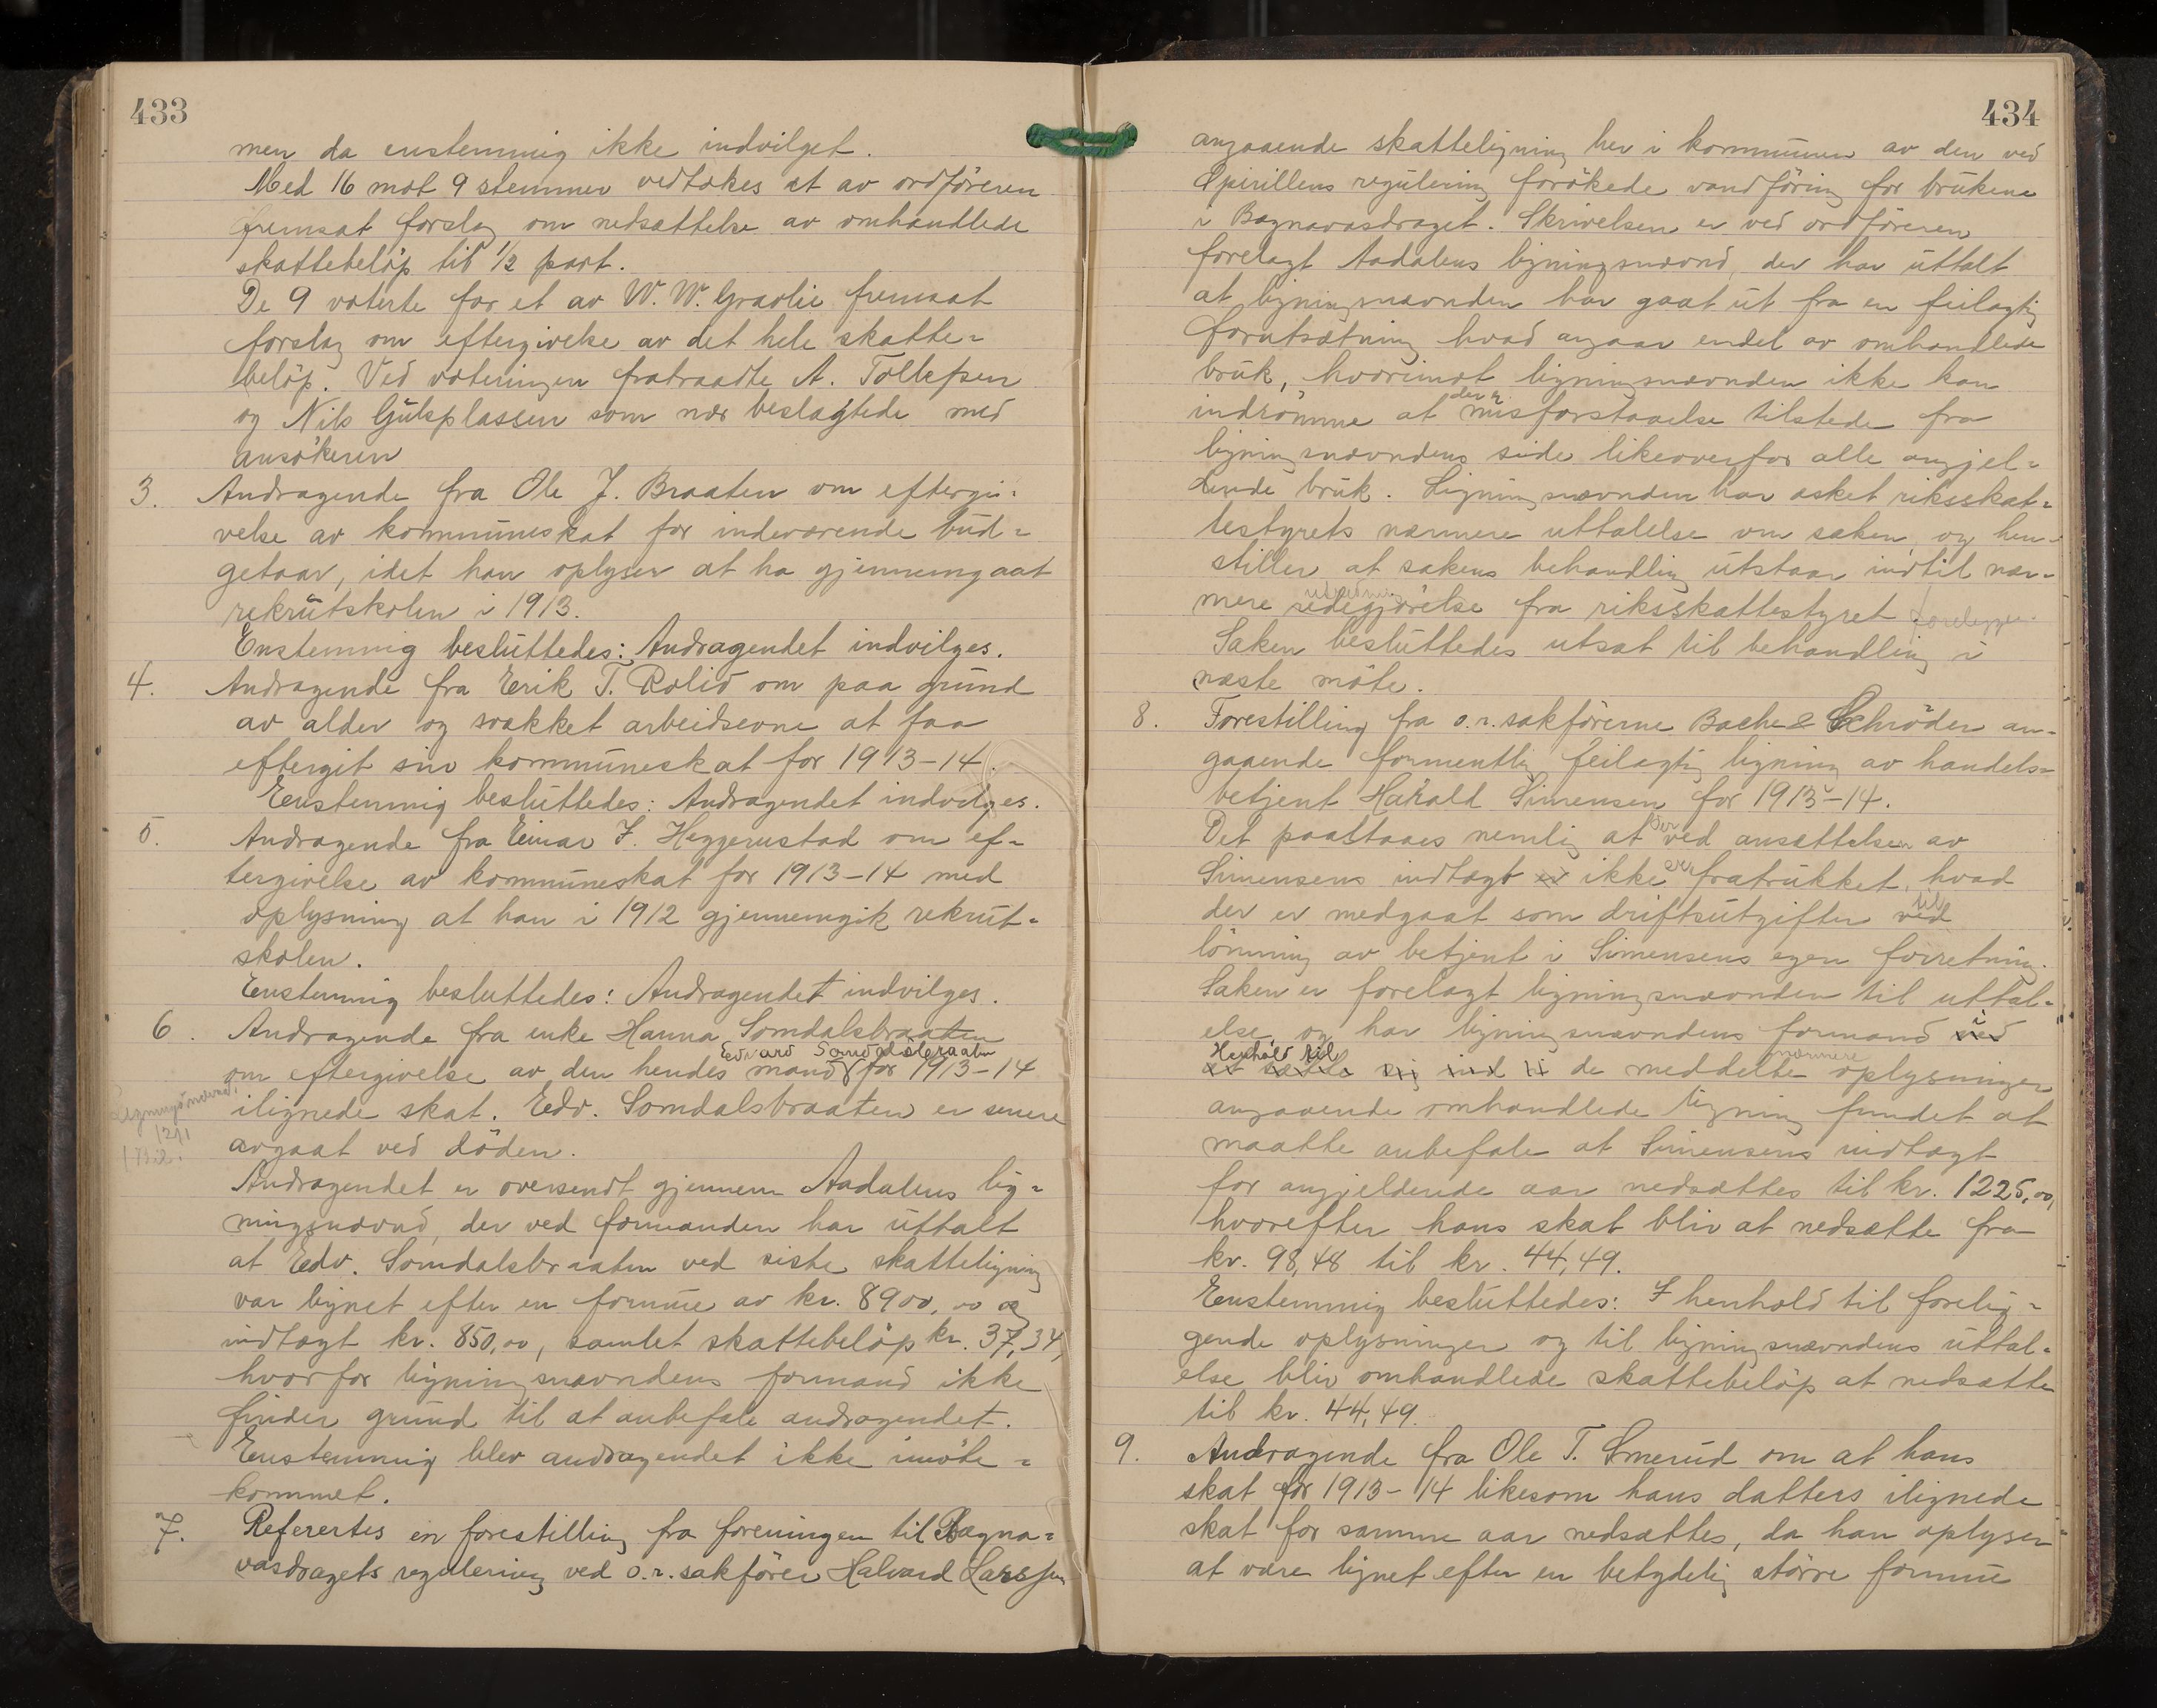 433
men da enstemmig ikke indvilget.
Med 16 mot 9 stemmer vedtokes et av ordföreren
fremsat forslag om nedsættelse av omhandlede
skattebelöp til 1/2 part.
De 9 voterte for et av W. W. Gravlie fremsat
forslag om eftergivelse av det hele skatte=
belöp. Ved voteringen fratraadte A. Tollefsen
og Nils Gulsplassen som nær beslægtede med
ansökeren
3. Andragende fra Ole J. Braaten om eftergi=
velse av kommuneskat for indeværende bud=
getaar, idet han oplyser at ha gjennemgaat
rekrutskolen i 1913.
Enstemmig besluttedes: Andragendet indvilges.
4. Andragende fra Erik T. Rolid om paa grund
av alder og svækket arbeidsevne at faa
eftergit sin kommuneskat for 1913-14.
Eenstemmig besluttedes: Andragendet indvilges.
5. Andragende fra Einar J. Heggerustad om ef=
tergivelse av kommuneskat for 1913-14 med
oplysning at han i 1912 gjennemgik rekrut=
skolen.
Eenstemmig besluttedes: Andragendet indvilges.
6. Andragende fra enke Hanna Somdalsbraaten
Edvard Somdalsbraaten
om eftergivelse av den hendes mand for 1913-14
ilignede skat. Edv. Somdalsbraaten er senere
avgaat ved döden.
Andragendet er oversendt gjennem Aadalens lig=
ningsnævnd, der ved formanden har uttalt
at Edv. Somdalsbraaten ved siste skatteligning
var lignet efter en formue av kr. 8900,00 og
indtægt kr. 850,00, samlet skattebelöp kr. 37,34,
hvorfor ligningsnævndens formand ikke
finder grund til at anbefale andragendet.
Eenstemmig blev andragendet ikke imöte=
kommet.
7. Referertes en forestilling fra foreningen til Bægna=
vasdragets regulering ved o.r. sakförer Halvard Larssen
434
angaaende skatteligning her i kommunen av den ved
Spirillens regulering forökede vandföring for brukene
i Bægnavasdraget. Skrivelsen er ved ordföreren
forelagt Aadalens ligningsnævnd, der har uttalt
at ligningsnævnden har gaat ut fra en feilagtig
forutsætning hvad angaar endel av omhandlede
bruk, hvorimot ligningsnævnden ikke kan
der er
indrömme at misforstaaelse tilstede fra
ligningsnævndens side likeoverfor alle angjel=
dende bruk. Ligningsnævnden har æsket riksskat=
testyrets nærmere uttalelse om saken, og hen=
stiller at sakens behandling utstaar indtil nær=
utredning
mere redegjörelse fra riksskattestyret forelegges.
Saken besluttedes utsat til behandling i
næste möte.
8. Forestilling fra o.r. sakförerne Bache & Schröder an=
gaaende formentlig feilagtig ligning av handels=
betjent Harald Simensen for 1913-14.
der
Det paastaaes nemlig at ved ansættelsen av
er
Simensens indtægt er ikke fratrukket, hvad
til
der er medgaat som driftsutgifter ved
lönning av betjent i Simensens egen forretning.
Saken er forelagt ligningsnævnden til uttal=
i
else, og har ligningsnævndens formand ved
Henhold til nærmere
at sætte sig ind i de meddelte oplysninger
angaaende omhandlede ligning fundet at
maatte anbefale at Simensens indtægt
for angjeldende aar nedsættes til kr. 1225,00,
hvorefter hans skat bliv at nedsætte fra
kr. 98,48 til kr. 44,49.
Eenstemmig besluttedes: I henhold til forelig=
gende oplysninger og til ligningsnævndens uttal=
else bliv omhandlede skattebelöp at nedsætte
til kr. 44,49.
9. Andragende fra Ole T. Smerud om at hans
skat for 1913-14 likesom hans datters ilignede
skat for samme aar nedsættes, da han oplyser
at være lignet efter en betydelig större formue